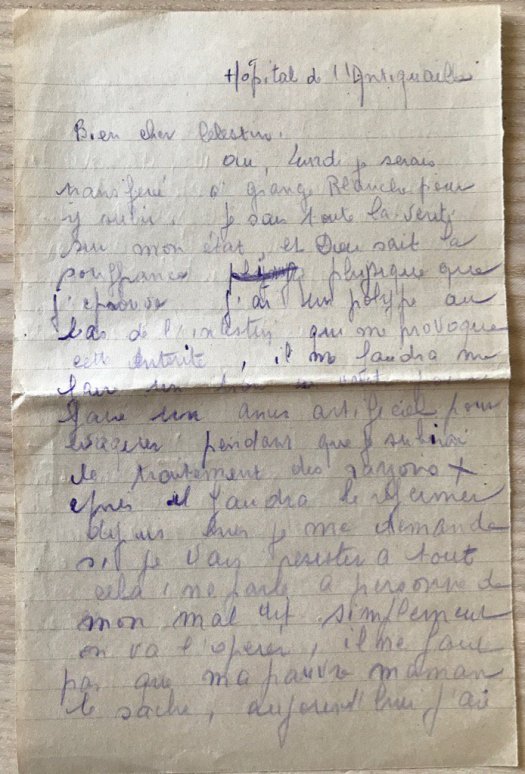 Hôpital de l'Antiquaille
Bien cher Celestin.
Oui, Lundi je serais
transféré à grange Blanche pour
y subir. je sais toute la verité
sur mon état, et Dieu sait la
souffrance physique que
j'éprouve j'ai un polype au
bas de l'intestin qui me provoque
cette enterite, il me faudra me
faire un
faire un anus artificiel pour
pendant que je subirai
le traitement des rayons X
après il faudra le refermer
depuis hier je me demande
si je vais resister a tout
cela, ne parle a personne de
mon mal dit simplement
on va l'operer, il ne faut
pas que ma pauvre maman
le sache, aujourd'hui j'ai